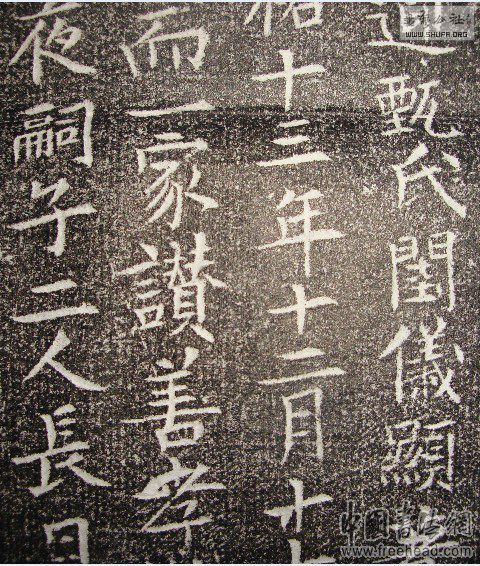 甄氏閨儀顯
祐十三年十二月十
而一家讚善孝
夜嗣子二人長曰
WWW.SHUFA.ORG
中國書法網
http://www.freehead.com